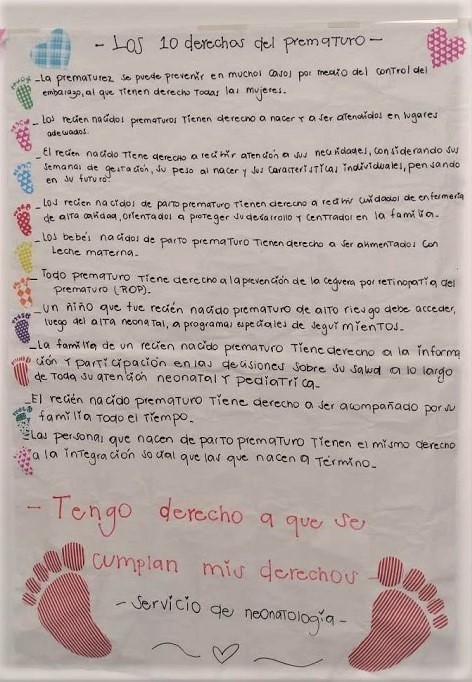 - Los 10 derechos del prematuro -
- La prematurez se puede prevenir en muchos casos por medio del control del
embarazo, al que tienen derecho todas las mujeres.
- Los recien nacidos prematuros tienen derecho a nacer y a ser atendidos en lugares
adecuados.
- El recien nacido tiene derecho a recibir atención a sus necesidades, considerando sus
semanas de gestación, su peso al nacer y sus características individuales, pensando
en su futuro.
- Los recien nacidos de parto prematuro tienen derecho a recibir cuidados de enfermería
de alta calidad, orientados a proteger su desarrollo y centrados en la familia.
- Los bebés nacidos de parto prematuro tienen derecho a ser alimentados con
leche materna.
- Todo prematuro tiene derecho a la prevención de la ceguera por retinopatía del
prematuro (ROP).
- un niño que fue recién nacido prematuro de alto riesgo debe acceder,
luego del alta neonatal, a programas especiales de seguimientos.
- La familia de un recien nacido prematuro tiene derecho a la informa
ción y participación en las decisiones sobre su salud a lo largo
de toda su atención neonatal y pediatrica.
- El recién nacido prematuro tiene derecho a ser acompañado por su
familia todo el tiempo.
- Las personas que nacen de parto prematuro tienen el mismo derecho
a la integración social que las que nacen a término.
- Tengo derecho a que se
cumplan mis derechos -
- servicio de neonatología -